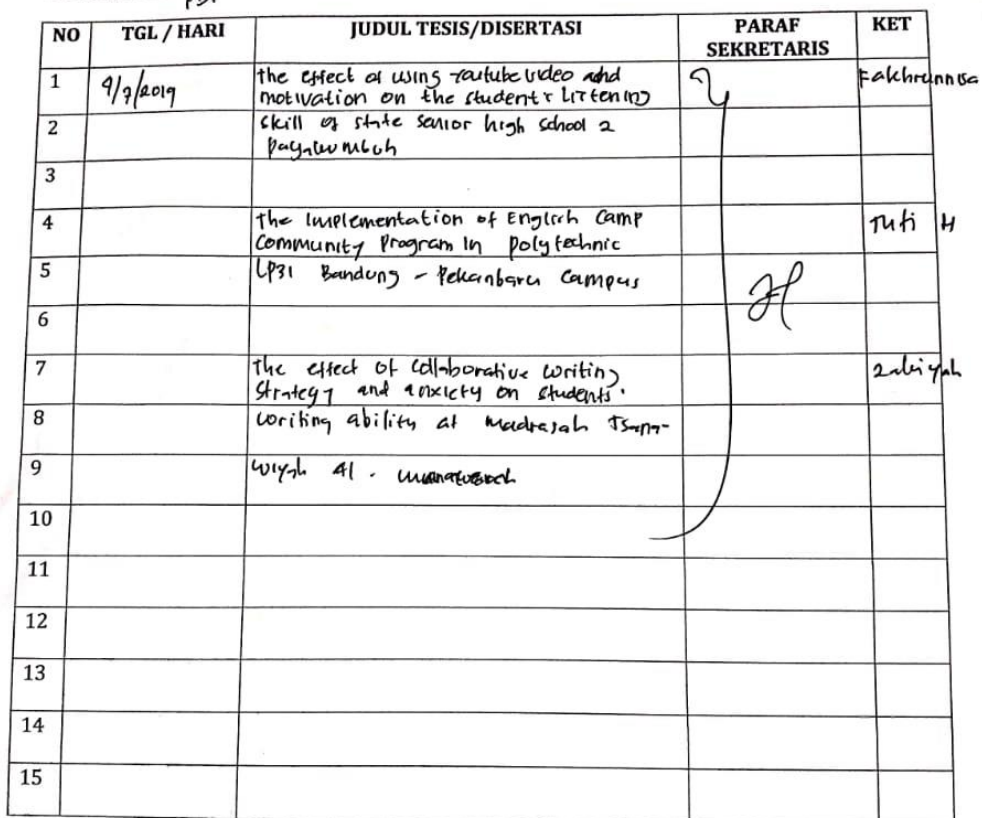 NO TGL / HARI JUDUL TESIS/DISERTASI PARAF SEKRETARIS KET
1 9/7/2019 the effect of using Youtube video and Fakhrunnisa
motivation on the student's Listening
2 skill of state senior high school 2
Payakumbuh
3
4 the Implementation of English Camp Tuti H
Community Program In polytechnic
5 LP3I Bandung - Pekanbaru Campus
6
7 the effect of collaborative writing Zabiyah
Strategy and anxiety on students'
8 writing ability at madrasah Tsana-
9 wiyah Al -
10
11
12
13
14
15